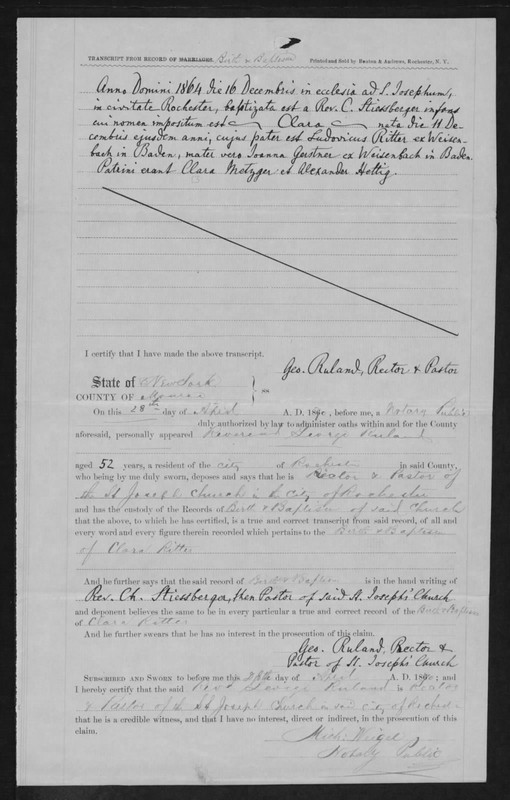 TRANSCRIPT FROM RECORD OF MARRIAGES. Birth & Baptism Printed and Sold by Huxton & Andrews, Rochester, N. Y.
Anno Domini 1864 die 16 Decembris in eclesia ad S. Josephum,
in civitate Rochester, baptizata est a Rev. C. Stiessberger infans
cui nomen impositum est Clara nata die 11 De-
cembris ejusdem anni, cujus pater est Ludovicus Ritter ex Weisen-
bach in Baden, mater vero Joanna Gerstner ex Weisenbach in Baden.
Patrini erant Clara Metzger et Alexander Hettig.
I certify that I have made the above transcript.
Geo. Ruland, Rector & Pastor
State of New York
COUNTY OF Monroe
On this 28th day of April A. D. 1890, before me, a Notary Public
duly authorized by law to administer oaths within and for the County
aforesaid, personally appeared Reverend George Ruland
aged 52 years, a resident of the city of Rochester in said County,
who being by me duly sworn, deposes and says that he is Rector & Pastor of
the St Joseph Church in the City of Rochester
and has the custody of the Records of Birth & Baptism of said Church
that the above, to which he has certified, is a true and correct transcript from said record, of all and
every word and every figure therein recorded which pertains to the Birth & Baptism
of Clara Ritter
And he further says that the said record of Birth & Baptism is in the hand writing of
Rev. Ch. Stiessberger, then Pastor of said St. Joseph's Church
and deponent believes the same to be in every particular a true and correct record of the Birth & Baptism
of Clara Ritter
And he further swears that he has no interest in the prosecution of this claim.
Geo. Ruland, Rector &
Pastor of St. Joseph's Church
SUBSCRIBED AND SWORN to before me this 28th day of April A. D. 1890; and
I hereby certify that the said Revd George Ruland is Rector
& Pastor of the St Joseph Church in said City of Rochester
that he is a credible witness, and that I have no interest, direct or indirect, in the prosecution of this
claim.
Mich. Weigel
Notary Public